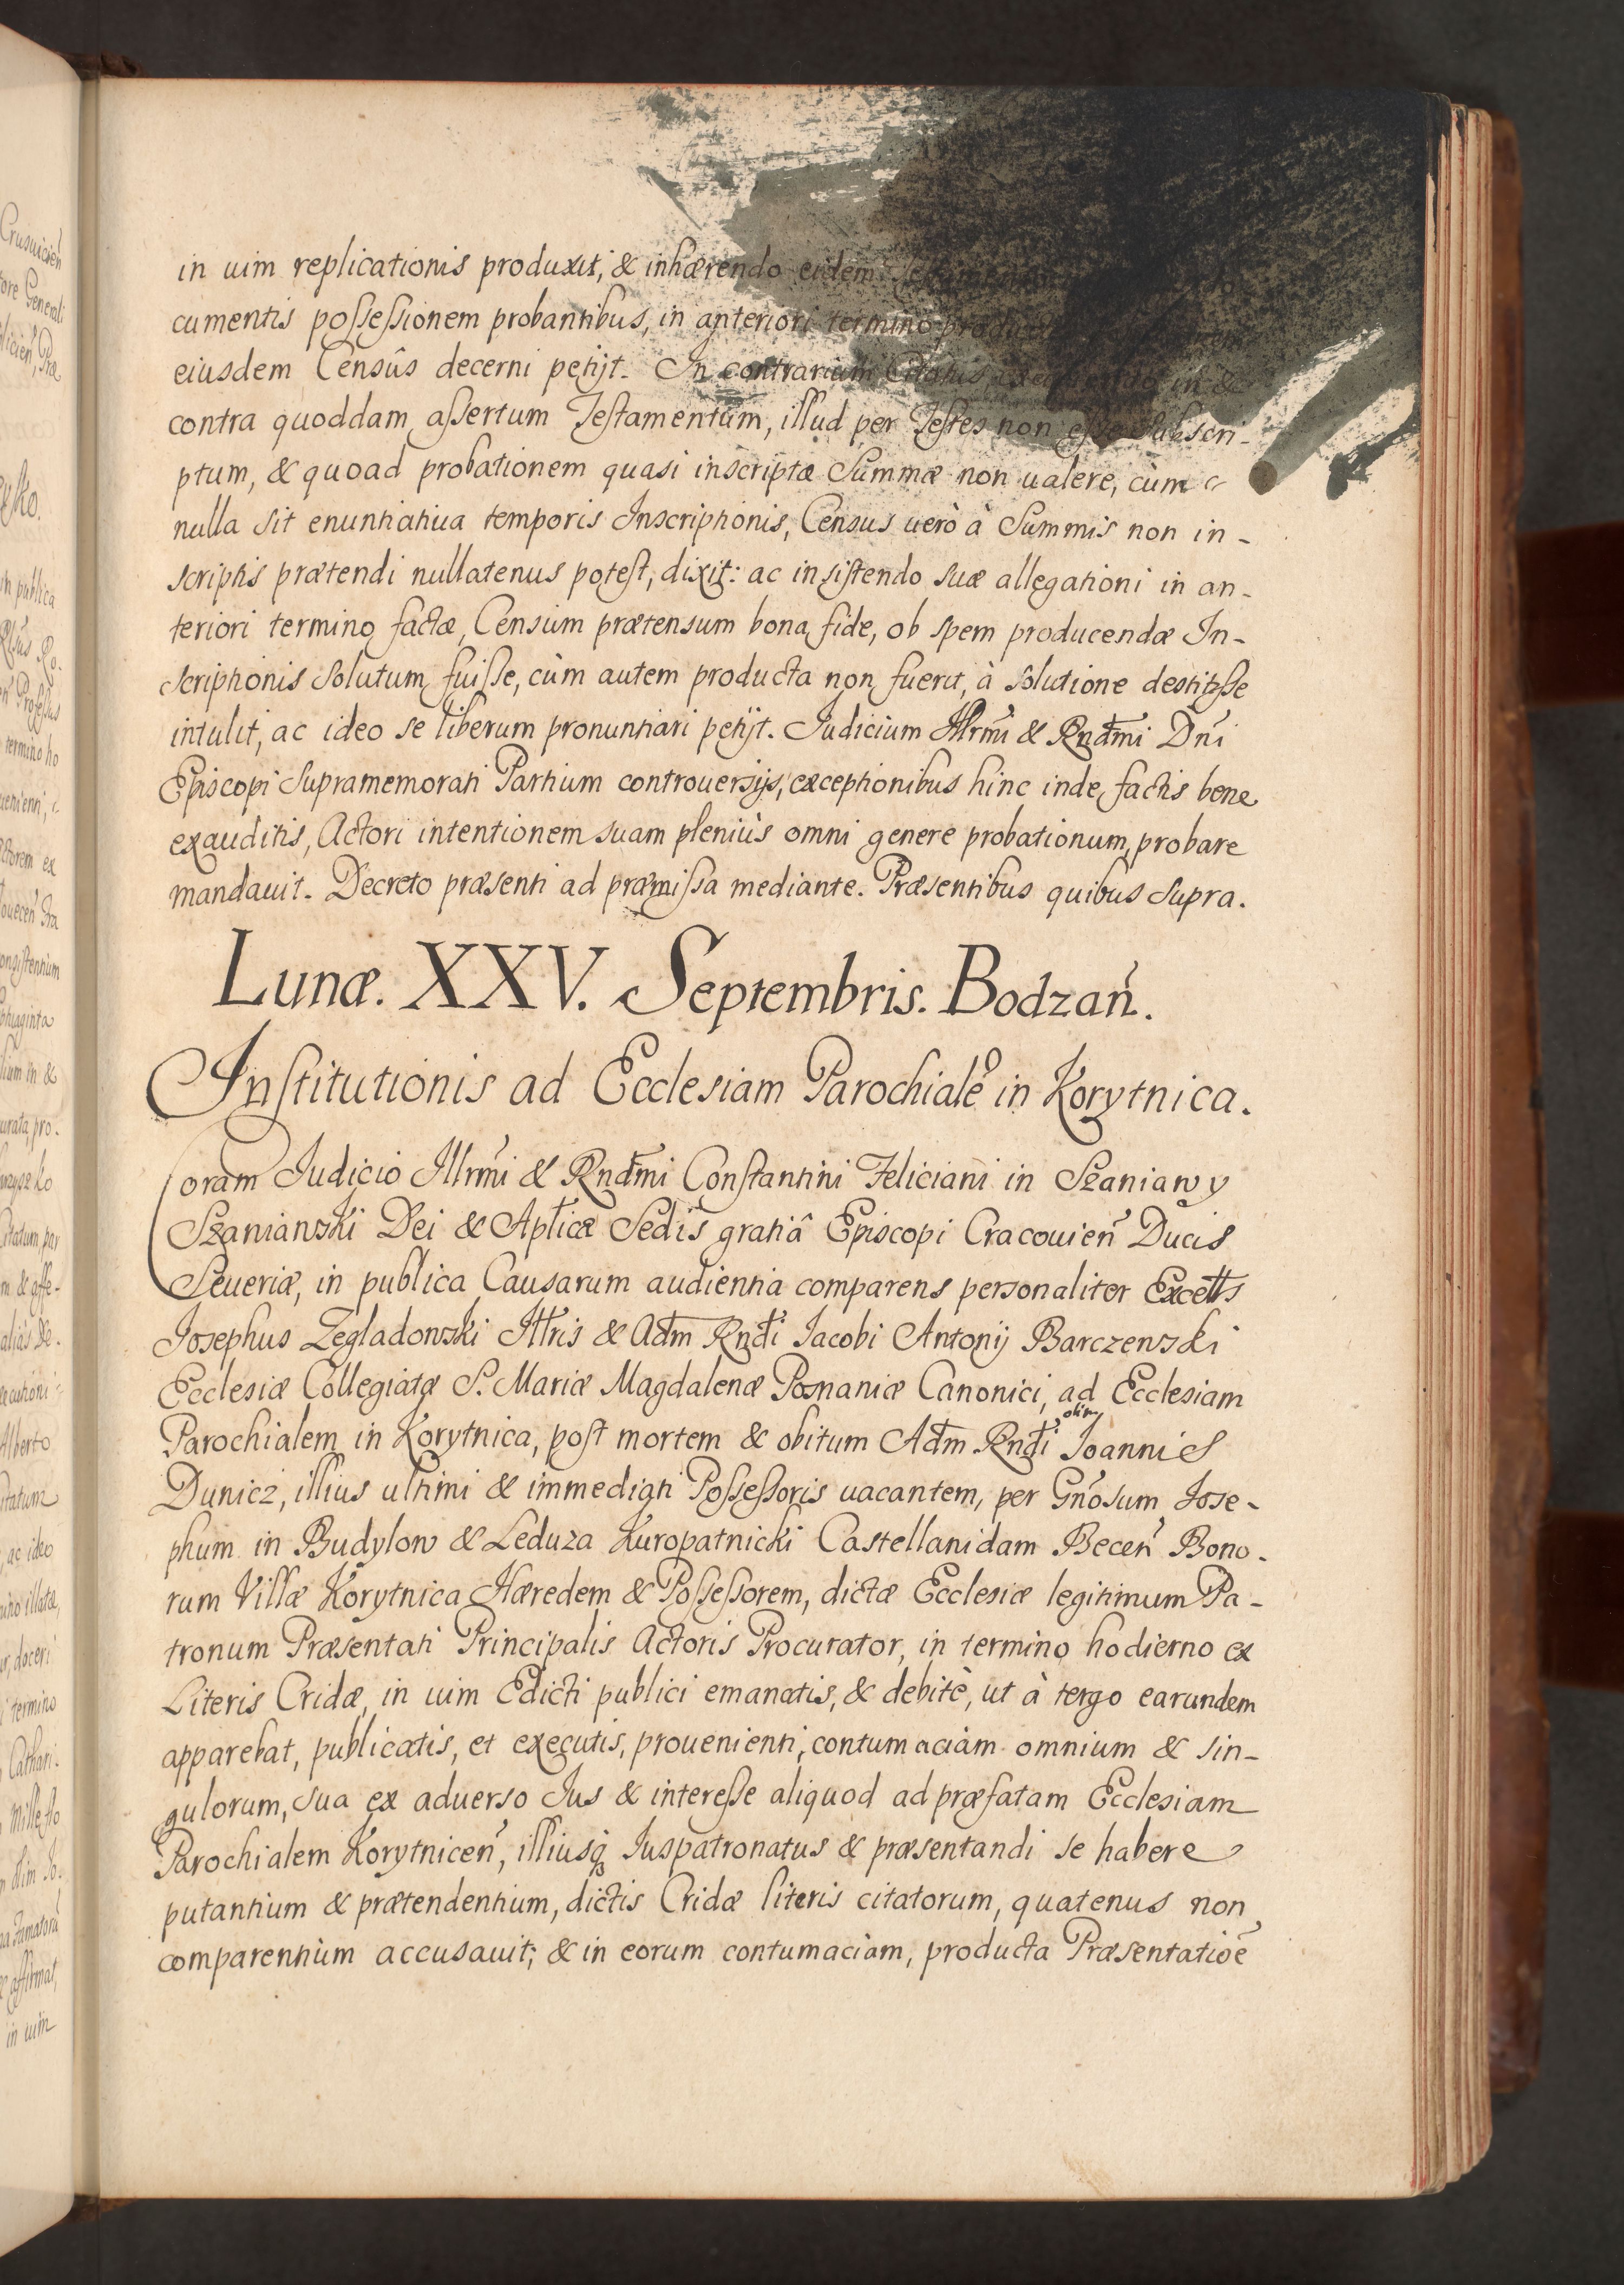 in uim replicationis produxit, & inhærendo eidem
cumentis possessionem probantibus, in anteriori termino
eiusdem Censûs decerni petijt. In contrarium Citatus, in &
contra quoddam assertum Testamentum, illud per Testes non esse subscri-
ptum, & quoad probationem quasi inscriptæ Summæ non ualere, cùm
nulla sit enuntiatiua temporis Inscriptionis, Census uerò à Summis non in-
scriptis prætendi nullatenus potest, dixit: ac insistendo suæ allegationi in an-
teriori termino factæ, Censum prætensum bona fide, ob spem producendæ In-
scriptionis solutum fuisse, cùm autem producta non fuerit, à solutione destitisse
intulit, ac ideo se liberum pronuntiari petijt. Iudicium Illrm̃i & Rndm̃i Dñi
Episcopi supramemorati Partium controuersijs, exceptionibus hinc inde factis bene
exauditis, Actori intentionem suam pleniùs omni genere probationum probare
mandauit. Decreto præsenti ad præmissa mediante. Præsentibus quibus supra.
Lunæ. XXV. Septembris. Bodzań.
Institutionis ad Ecclesiam Parochialẽ in Korytnica.
Coram Iudicio Illrm̃i & Rndm̃i Constantini Feliciani in Szaniawy
Szaniawski Dei & Aplicæ Sedis gratiâ Episcopi Cracouień Ducis
Seueriæ, in publica Causarum audientia comparens personaliter Excells
Josephus Zegladowski Illris & Adm Rndi Iacobi Antonij Barczewski
Ecclesiæ Collegiatæ S. Mariæ Magdalenæ Posnaniæ Canonici, ad Ecclesiam
Parochialem in Korytnica, post mortem & obitum Adm Rndi olim Ioannis
Dunicz, illius ultimi & immediati Possessoris uacantem, per Gñosum Jose-
phum in Budylow & Leduza Kuropatnicki Castellanidam Beceń Bono-
rum Villæ Korytnica Hæredem & Possessorem, dictæ Ecclesiæ legitimum Pa-
tronum Præsentati Principalis Actoris Procurator, in termino hodierno ex
Literis Cridæ, in uim Edicti publici emanatis, & debitè, ut à tergo earundem
apparebat, publicatis, et executis, prouenienti, contumaciam omnium & sin-
gulorum, sua ex aduerso Ius & interesse aliquod ad præfatam Ecclesiam
Parochialem Korytniceń, illiusq Iuspatronatus & præsentandi se habere
putantium & prætendentium, dictis Cridæ literis citatorum, quatenus non
comparentium accusauit; & in eorum contumaciam, producta Præsentatioẽ